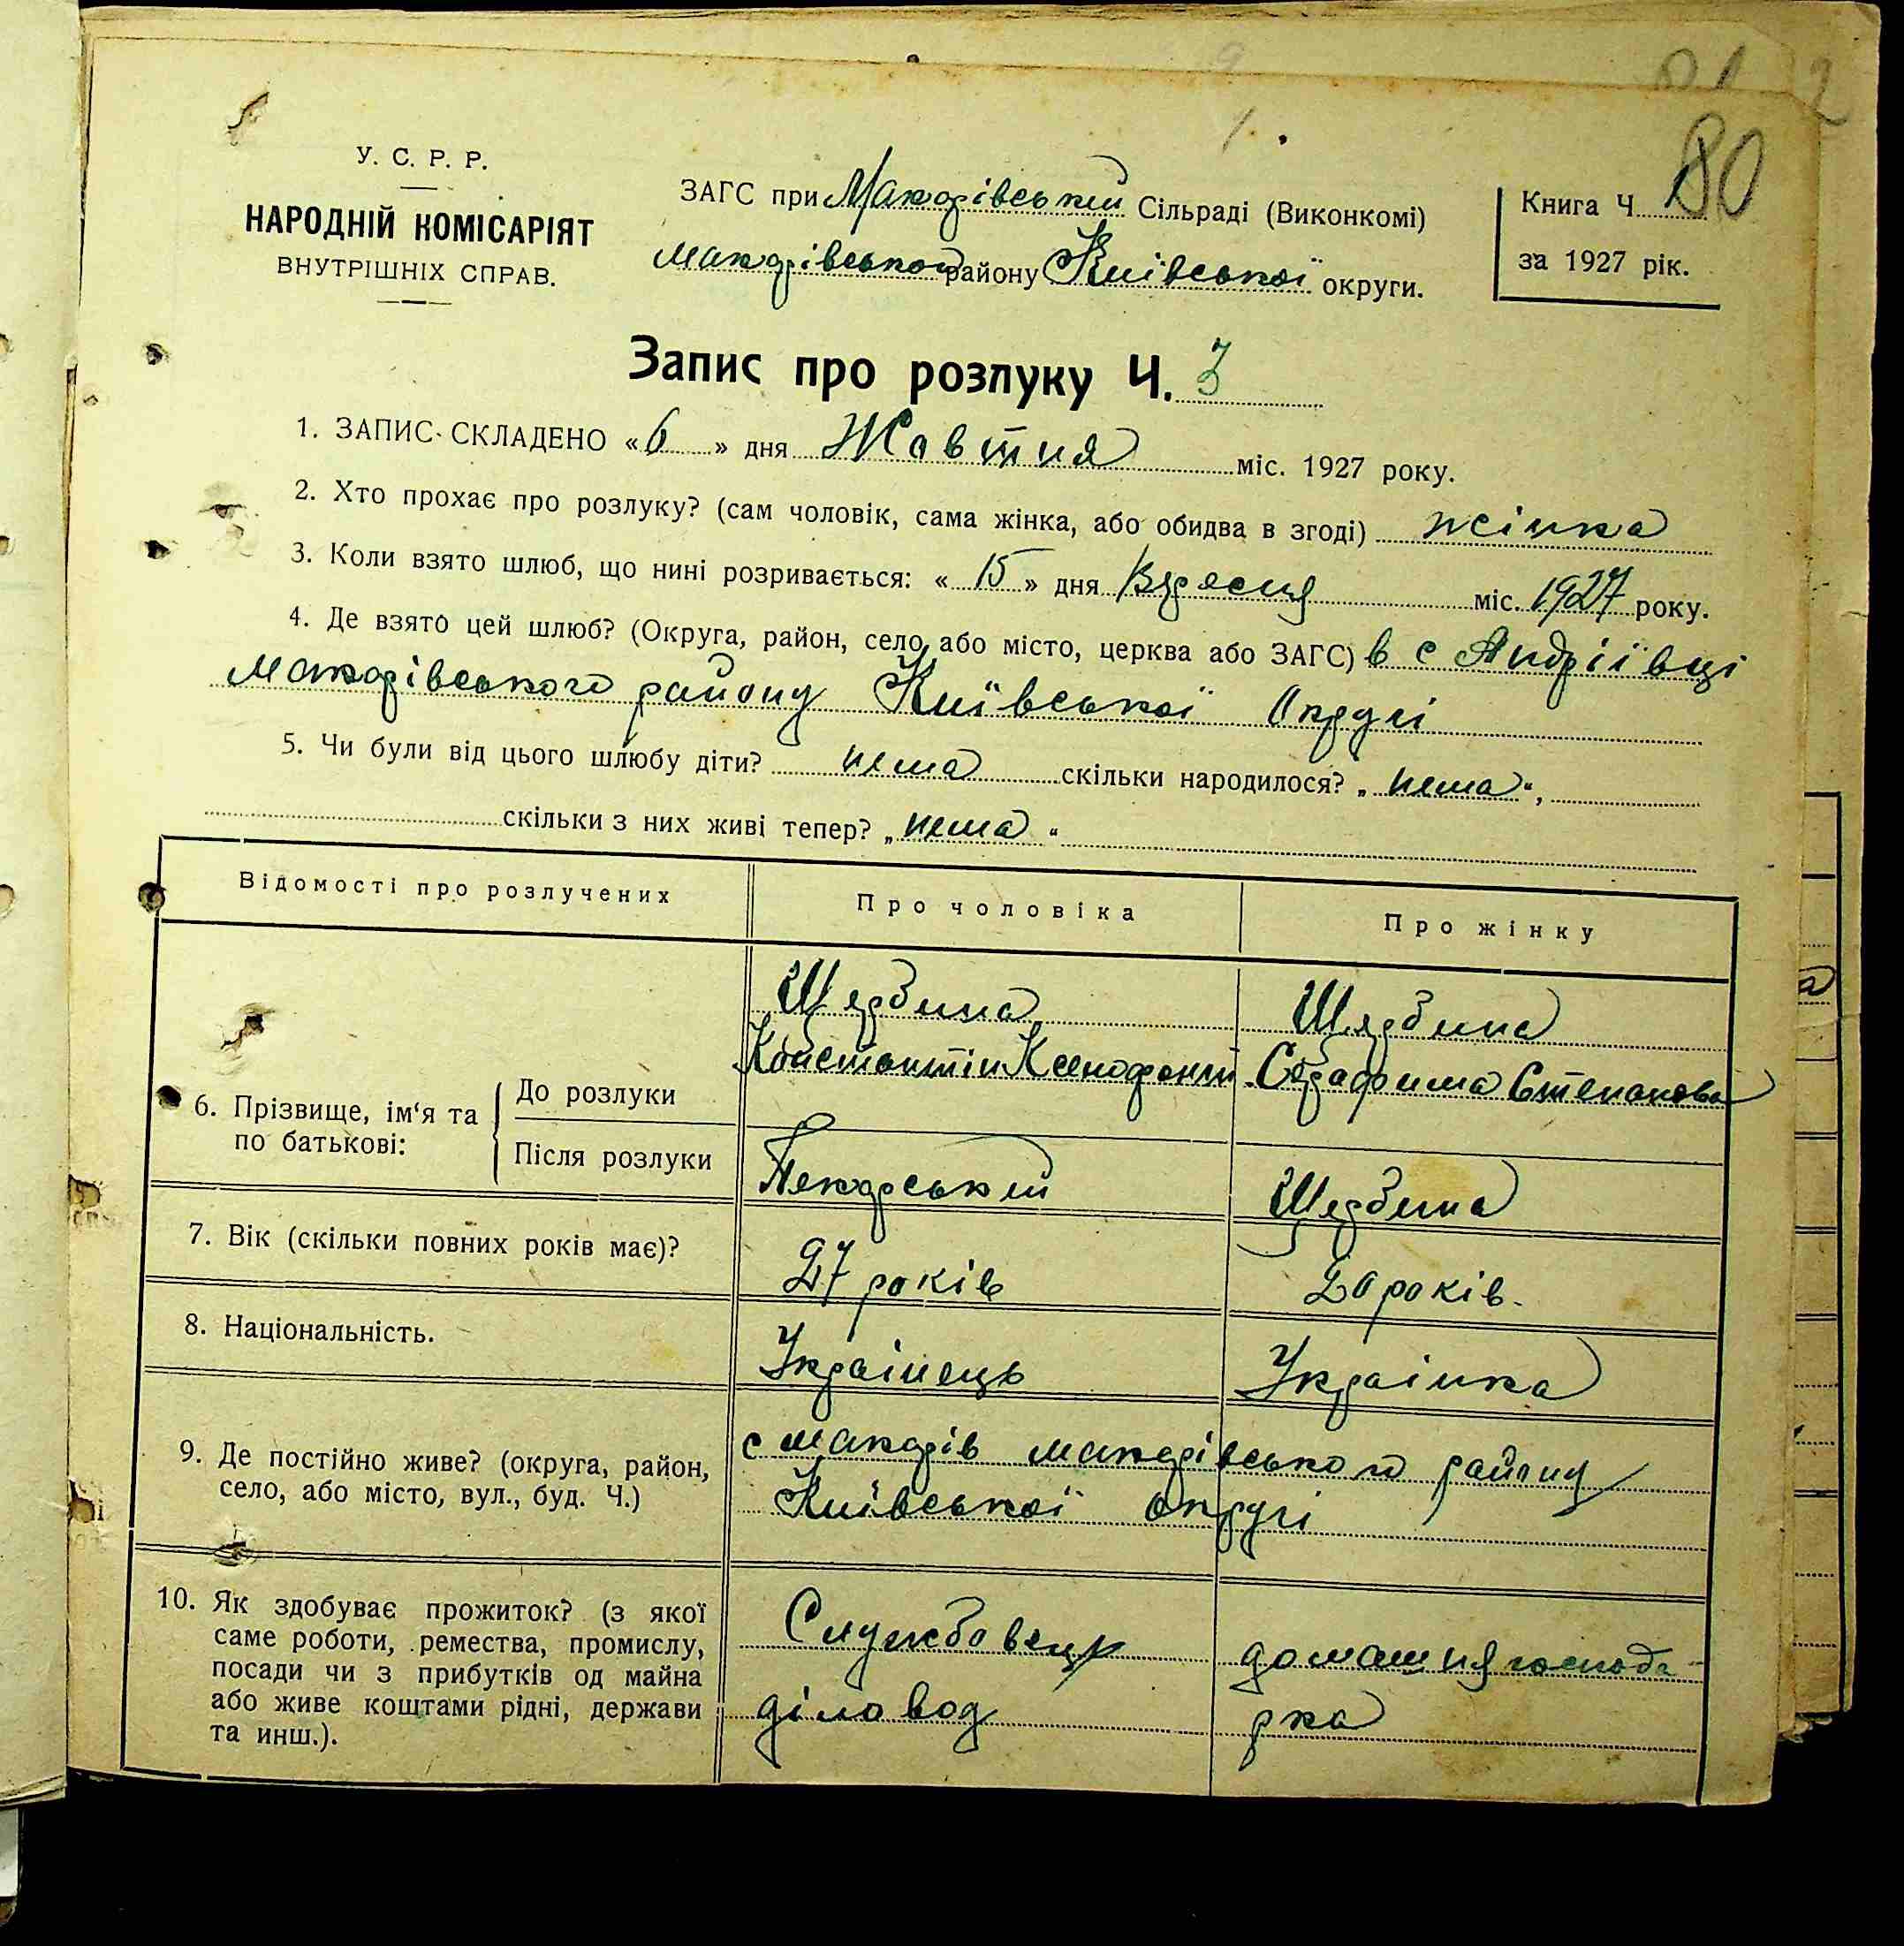 80
У. С. Р. Р.
НАРОДНІЙ КОМІСАРІЯТ
ВНУТРІШНІХ СПРАВ.
ЗАГС при Макарівській Сільраді (Виконкомі)
Макарівського району Київської округи.
Книга Ч.
за 1927 рік.
Запис про розлуку Ч. 3
1. ЗАПИС СКЛАДЕНО «6» дня Жовтня міс. 1927 року.
2. Хто прохає про розлуку? (сам чоловік, сама жінка, або обидва в згоді) жінка
3. Коли взято шлюб, що нині розривається: «15» дня Вересня міс. 1927 року.
4. Де взято цей шлюб? (Округа, район, село, або місто, церква або ЗАГС) в с Андріївці
Макарівського району Київської Округі
5. Чи були від цього шлюбу діти? нема скільки народилося? „нема“,
скільки з них живі тепер? „нема“
Відомості про розлучених
Про чоловіка
Про жінку
6. Прізвище, ім‘я та по батькові:
До розлуки
Щербина
Константін Ксенофонт.
Щербина
Серафима Степанова
Після розлуки
Пекарський
Щербина
7. Вік (скільки повних років має)?
27 років
20 років.
8. Національність.
Українець
Українка
9. Де постійно живе? (округа, район,
село, або місто, вул., буд. Ч.)
с Макарів Макарівського району
Київської округі
10. Як здобуває прожиток? (з якої
саме роботи, ремества, промислу,
посади чи з прибутків од майна
або живе коштами рідні, держави
та инш.).
Службовець
діловод
домашня господа-
рка